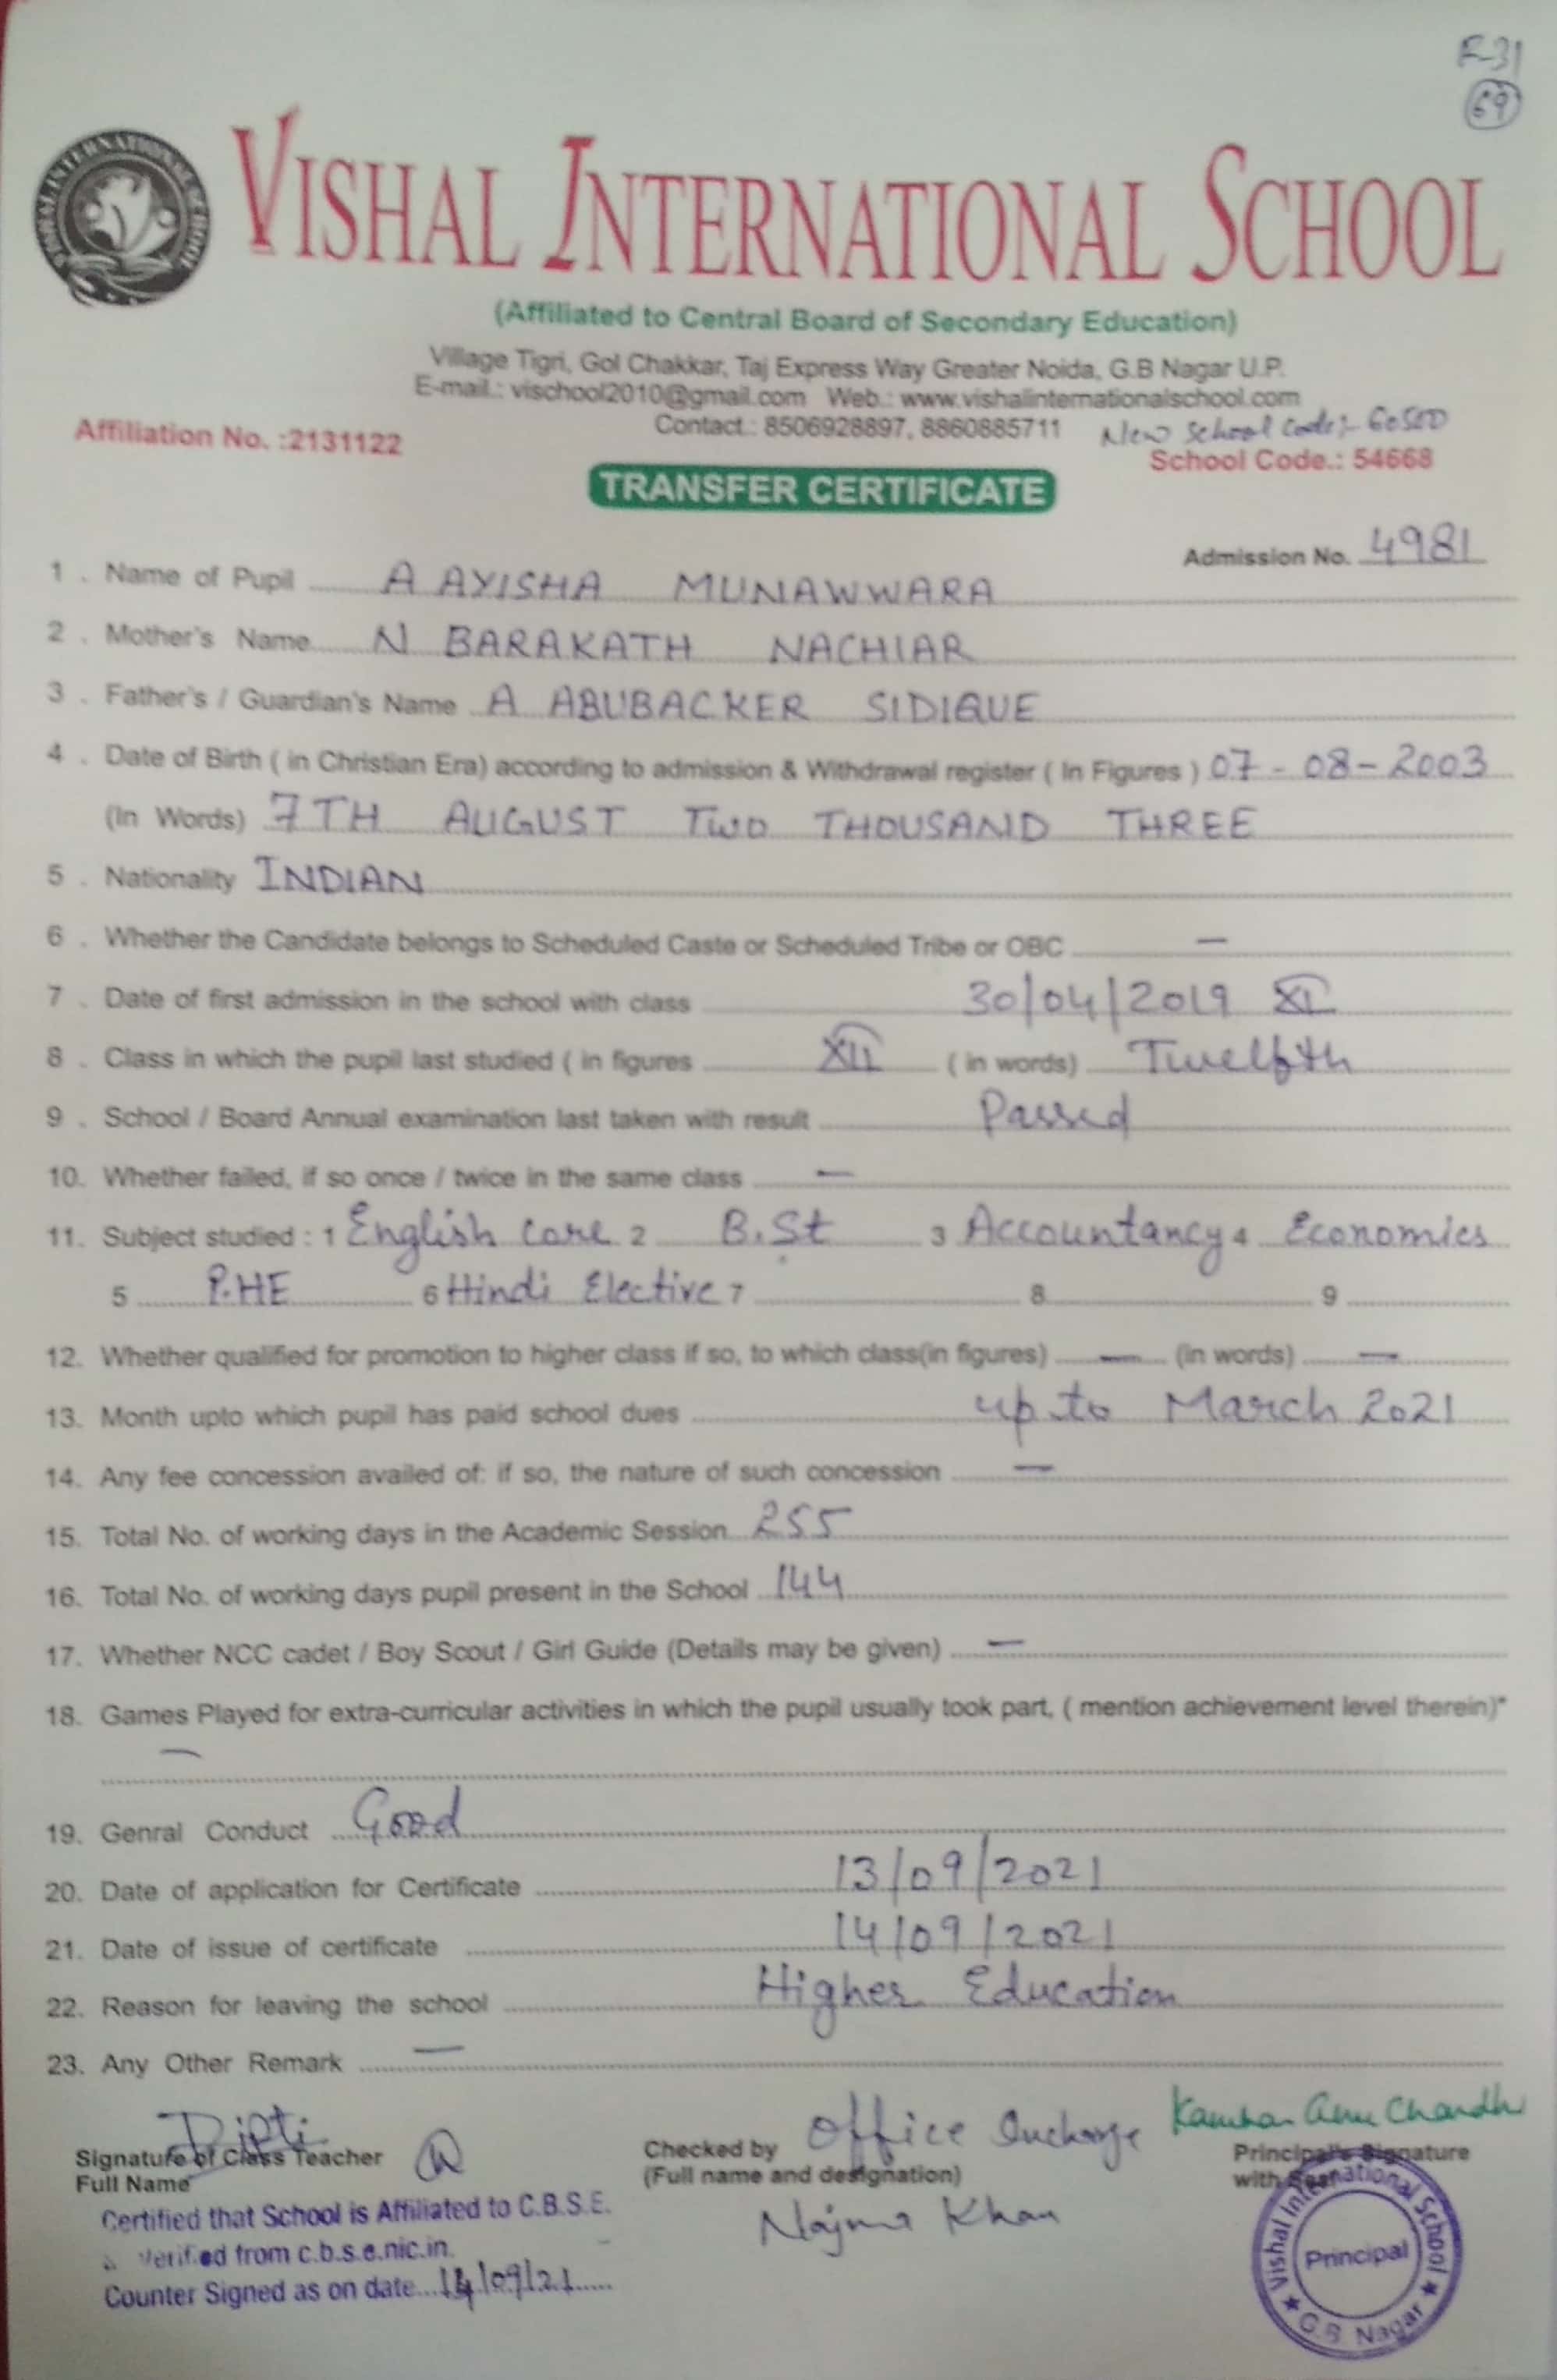 F-31
69
VISHAL INTERNATIONAL SCHOOL
(Affiliated to Central Board of Secondary Education)
Village Tigri, Gol Chakkar, Taj Express Way Greater Noida, G.B Nagar U.P.
E-mail.: vischool2010@gmail.com Web.: www.vishalinternationalschool.com
Contact.: 8506928897, 8860885711 New School Code:-
Affiliation No. :2131122
School Code.: 54668
TRANSFER CERTIFICATE
Admission No. 4981
1 . Name of Pupil A AYISHA MUNAWWARA
2 . Mother's Name N BARAKATH NACHIAR
3 . Father's / Guardian's Name A ABUBACKER SIDIQUE
4 . Date of Birth ( in Christian Era) according to admission & Withdrawal register ( In Figures ) 07-08-2003
(In Words) 7TH AUGUST TWO THOUSAND THREE
5 . Nationality INDIAN
6 . Whether the Candidate belongs to Scheduled Caste or Scheduled Tribe or OBC —
7 . Date of first admission in the school with class 30/04/2019 XI
8 . Class in which the pupil last studied ( in figures XII ( in words) Twelfth
9 . School / Board Annual examination last taken with result Passed
10. Whether failed, if so once / twice in the same class —
11. Subject studied : 1 English Core 2 B.St 3 Accountancy 4 Economics
5 P.HE 6 Hindi Elective 7 8 9
12. Whether qualified for promotion to higher class if so, to which class(in figures) — (in words) —
13. Month upto which pupil has paid school dues up to March 2021
14. Any fee concession availed of: if so, the nature of such concession —
15. Total No. of working days in the Academic Session 255
16. Total No. of working days pupil present in the School 144
17. Whether NCC cadet / Boy Scout / Girl Guide (Details may be given) —
18. Games Played for extra-curricular activities in which the pupil usually took part, ( mention achievement level therein)*
—
19. Genral Conduct Good
20. Date of application for Certificate 13/09/2021
21. Date of issue of certificate 14/09/2021
22. Reason for leaving the school Higher Education
23. Any Other Remark —
Dipti
Signature of Class Teacher
Full Name
Checked by Office Incharge
(Full name and designation)
Najma Khan
Principal's Signature
with Seal
Certified that School is Affiliated to C.B.S.E.
& Verified from c.b.s.e.nic.in.
Counter Signed as on date 14/09/21
Vishal International School
Principal
G.B Nagar